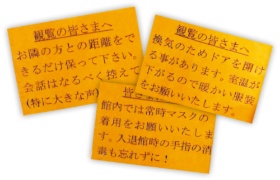 観覧の皆さまへ
お隣の方との距離をで
きるだけ保って下さい。
会話はなるべく控えて
(特に大きな声)
観覧の皆さまへ
換気のためドアを開け
る事があります。室温が
下がるので暖かい服装
をお願いいたします。
観覧の皆さまへ
館内では常時マスクの
着用をお願いいたしま
す。入退館時の手指の消
毒も忘れずに!